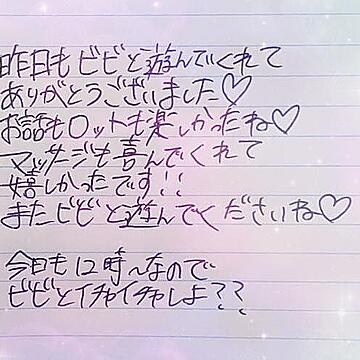 昨日もビビと遊んでくれて
ありがとうございました♡
お話もロットも楽しかったね♡
マッサージも喜んでくれて
嬉しかったです!!
またビビと遊んでくださいね♡
今日も12時〜なので
ビビとイチャイチャしよ??